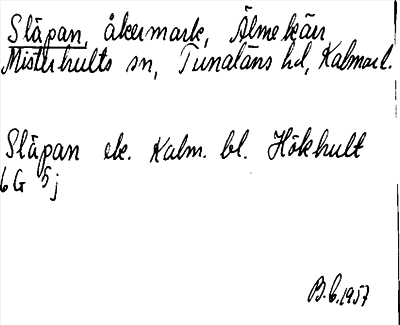 Släpan, åkermark, Älmekärr
Misterhults sn, Tunaläns hd, Kalmar l.
Släpan ek. Kalm. bl. Hökhult
6G 5j
B.G. 1957